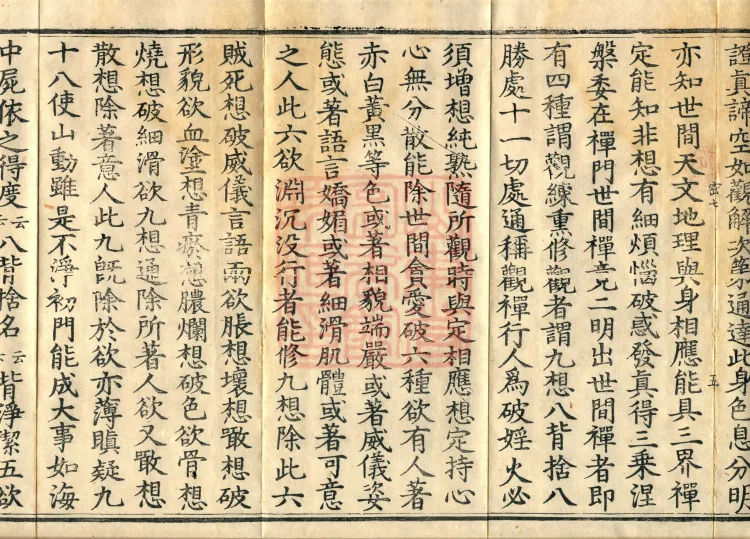 證真諦空如觀解次第通達此身色息分明
五
亦知世間天文地理與身相應能具三界禪
定能知非想有細煩惱破惑發真得三乘涅
槃委在禪門世間禪竟二明出世間禪者即
有四種謂觀練熏修觀者謂九想八背捨八
勝處十一切處通稱觀禪行人爲破婬火必
須增想純熟隨所觀時與定相應想定持心
心無分散能除世間貪愛破六種欲有人著
赤白黃黑等色或著相貌端嚴或著威儀姿
態或著語言嬌媚或著細滑肌體或著可意
之人此六欲淵沉没行者能修九想除此六
賊死想破威儀言語兩欲脹想壞想噉想破
形貌欲血塗想青瘀想膿爛想破色欲骨想
燒想破細滑欲九想通除所著人欲又噉想
散想除著意人此九旣除於欲亦薄瞋癡九
十八使山動雖是不淨初門能成大事如海
中屍依之得度云八背捨名云背淨潔五欲